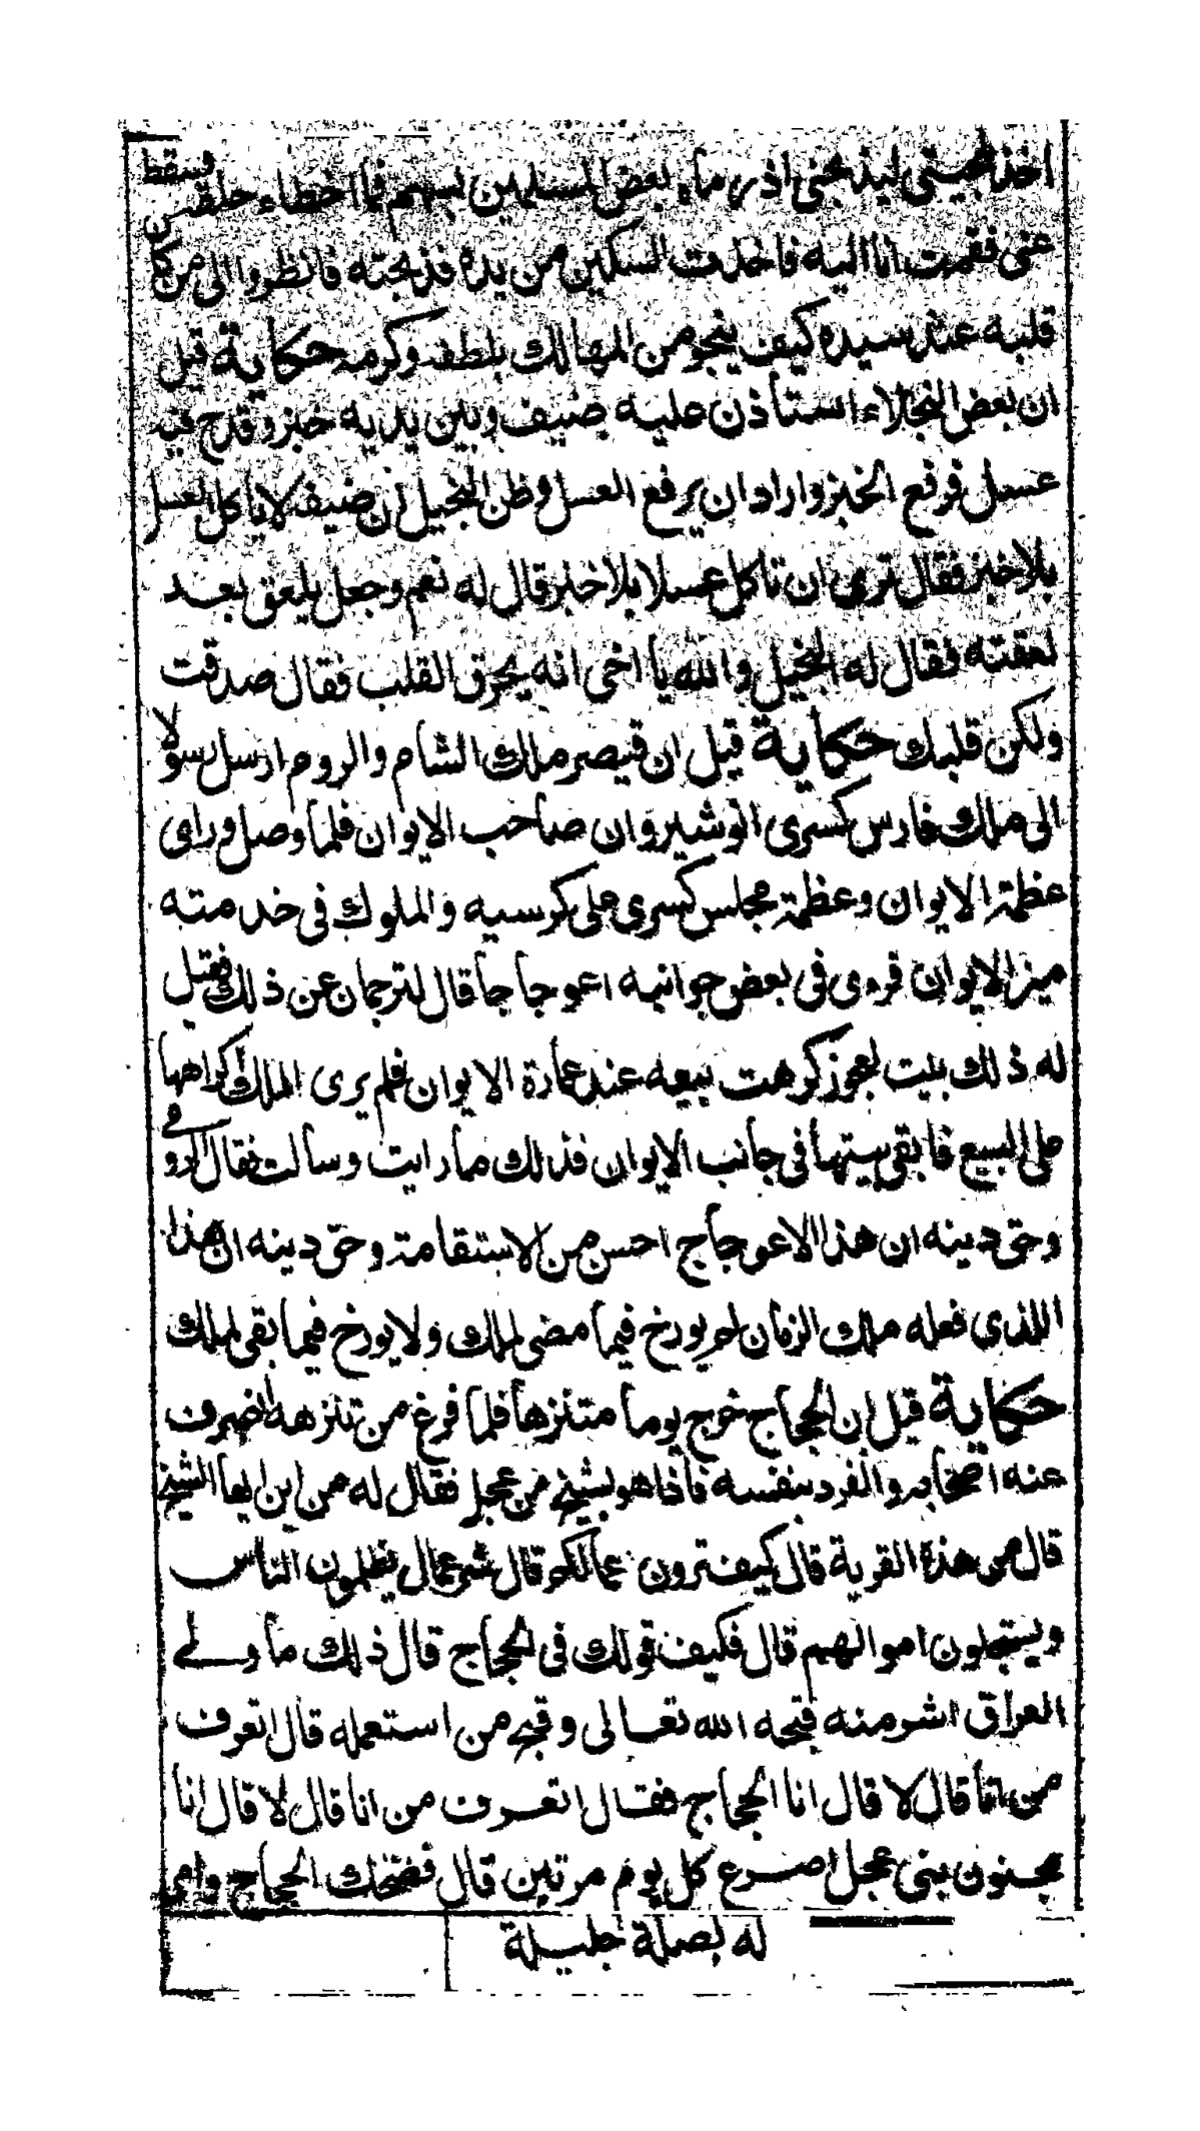 اخذ بلحيتى ليذبحنى اذ رماه بعض المسلمين بسهم فما اخطاء حلقه فسقط
عنى فقمت انا اليه فاخذت السكين من يده فذبحته فانظروا الى من كان
قلبه عند سيده كيف ينجو من المهالك بلطفه وكرمه حكاية قيل
ان بعض البخلاء استأذن عليه ضيف وبين يديه خبز وقدح فيه
عسل فرفع الخبز واراد ان يرفع العسل وظن البخيل ان ضيفه لا يأكل العسل
بلا خبز فقال ترى ان تاكل عسلا بلا خبز قال له نعم وجعل يلعق بعد
لعقته فقال له البخيل والله يا اخى انه يحرق القلب فقال صدقت
ولكن قلبك حكاية قيل ان قيصر ملك الشام والروم ارسل رسولا
الى ملك فارس كسرى انوشيروان صاحب الايوان فلما وصل وراى
عظمة الايوان وعظمة مجلس كسرى على كرسيه والملوك فى خدمته
ميز الايوان فرءى فى بعض جوانبه اعوجاجا قال لترجمان عن ذلك فقيل
له ذلك بيت لعجوز كرهت بيعه عند عمارة الايوان فلم يرى الملك اكراهها
على البيع فابقى بيتها فى جانب الايوان فذلك ما رايت وسألت فقال الرومى
وحق دينه ان هذا الاعوجاج احسن من الاستقامة وحق دينه ان هذا
اللذى فعله ملك الزمان لم يورخ فيما مضى لملك ولا يورخ فيما بقى لملك
حكاية قيل ان الحجاج خرج يوما متنزها فلما فرغ من تنزهه انصرف
عنه اصحابه وانفرد بنفسه فأذا هو بشيخ من عجل فقال له من اين ايها الشيخ
قال من هذه القرية قال كيف ترون عمالكم قال شر عمال يظلمون الناس
ويستحلون اموالهم قال فكيف قولك فى الحجاج قال ذلك ما ولى
العراق اشر منه قبحه الله تعالى وقبح من استعمله قال اتعرف
من انا قال لا قال انا الحجاج فقال اتعرف من انا قال لا قال انا
مجنون بنى عجل اصرع كل يوم مرتين قال فضحك الحجاج وامر
له بصلة جليلة